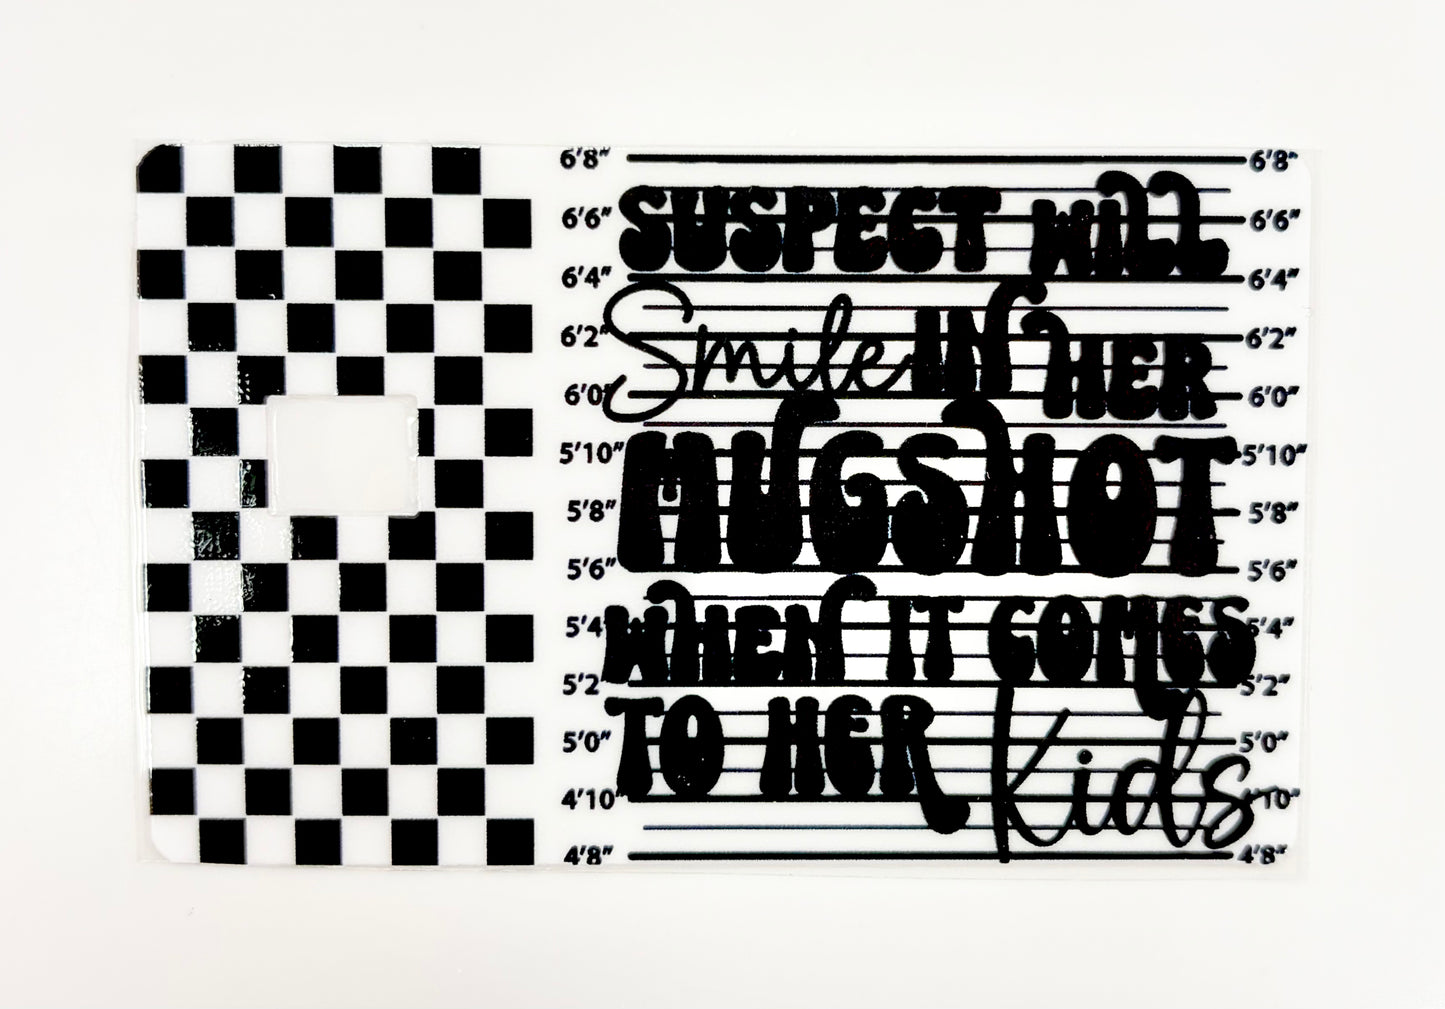 6'8" 6'8"
6'6" SUSPECT WILL 6'6"
6'4" 6'4"
6'2" Smile IN HER 6'2"
6'0" 6'0"
5'10" MUGSHOT 5'10"
5'8" 5'8"
5'6" 5'6"
5'4" WHEN IT COMES 5'4"
5'2" 5'2"
5'0" TO HER Kids 5'0"
4'10" 4'10"
4'8" 4'8"